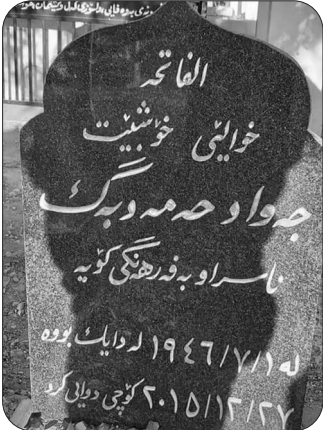 الفاتحه
خوالێی خۆشبێت
جەواد حەمەدبەگ
ناسراو بەفەرهەنگی کۆیە
لە ١٩٤٦/٧/١ لە دایك بووە
٢٠١٥/١٢/٢٧ کۆچی دوایی کرد